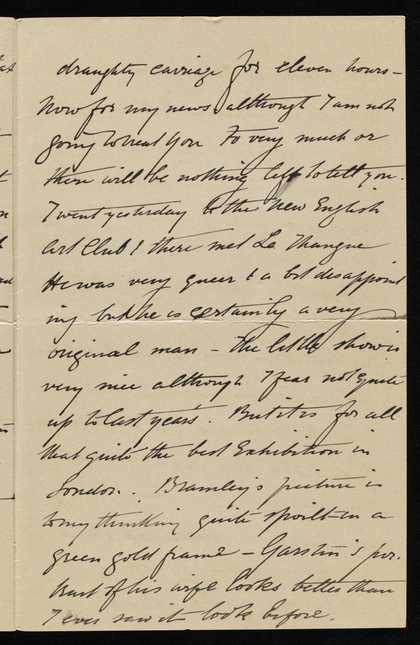 draughty carriage for eleven hours –
Now for my news although I am not
going to treat you to very much or
there will be nothing left to tell you.
I went yesterday to the New English
Art Club & there met La Thangue
He was very queer & a bit disappoint
ing but he is certainly a very
original man – the little show is
very nice although I fear not quite
up to last year's. But it is for all
that quite the best Exhibition in
London. Bramley's picture is
to my thinking quite spoilt in a
green gold frame – Garstin's por.
trait of his wife looks better than
I ever saw it look before.